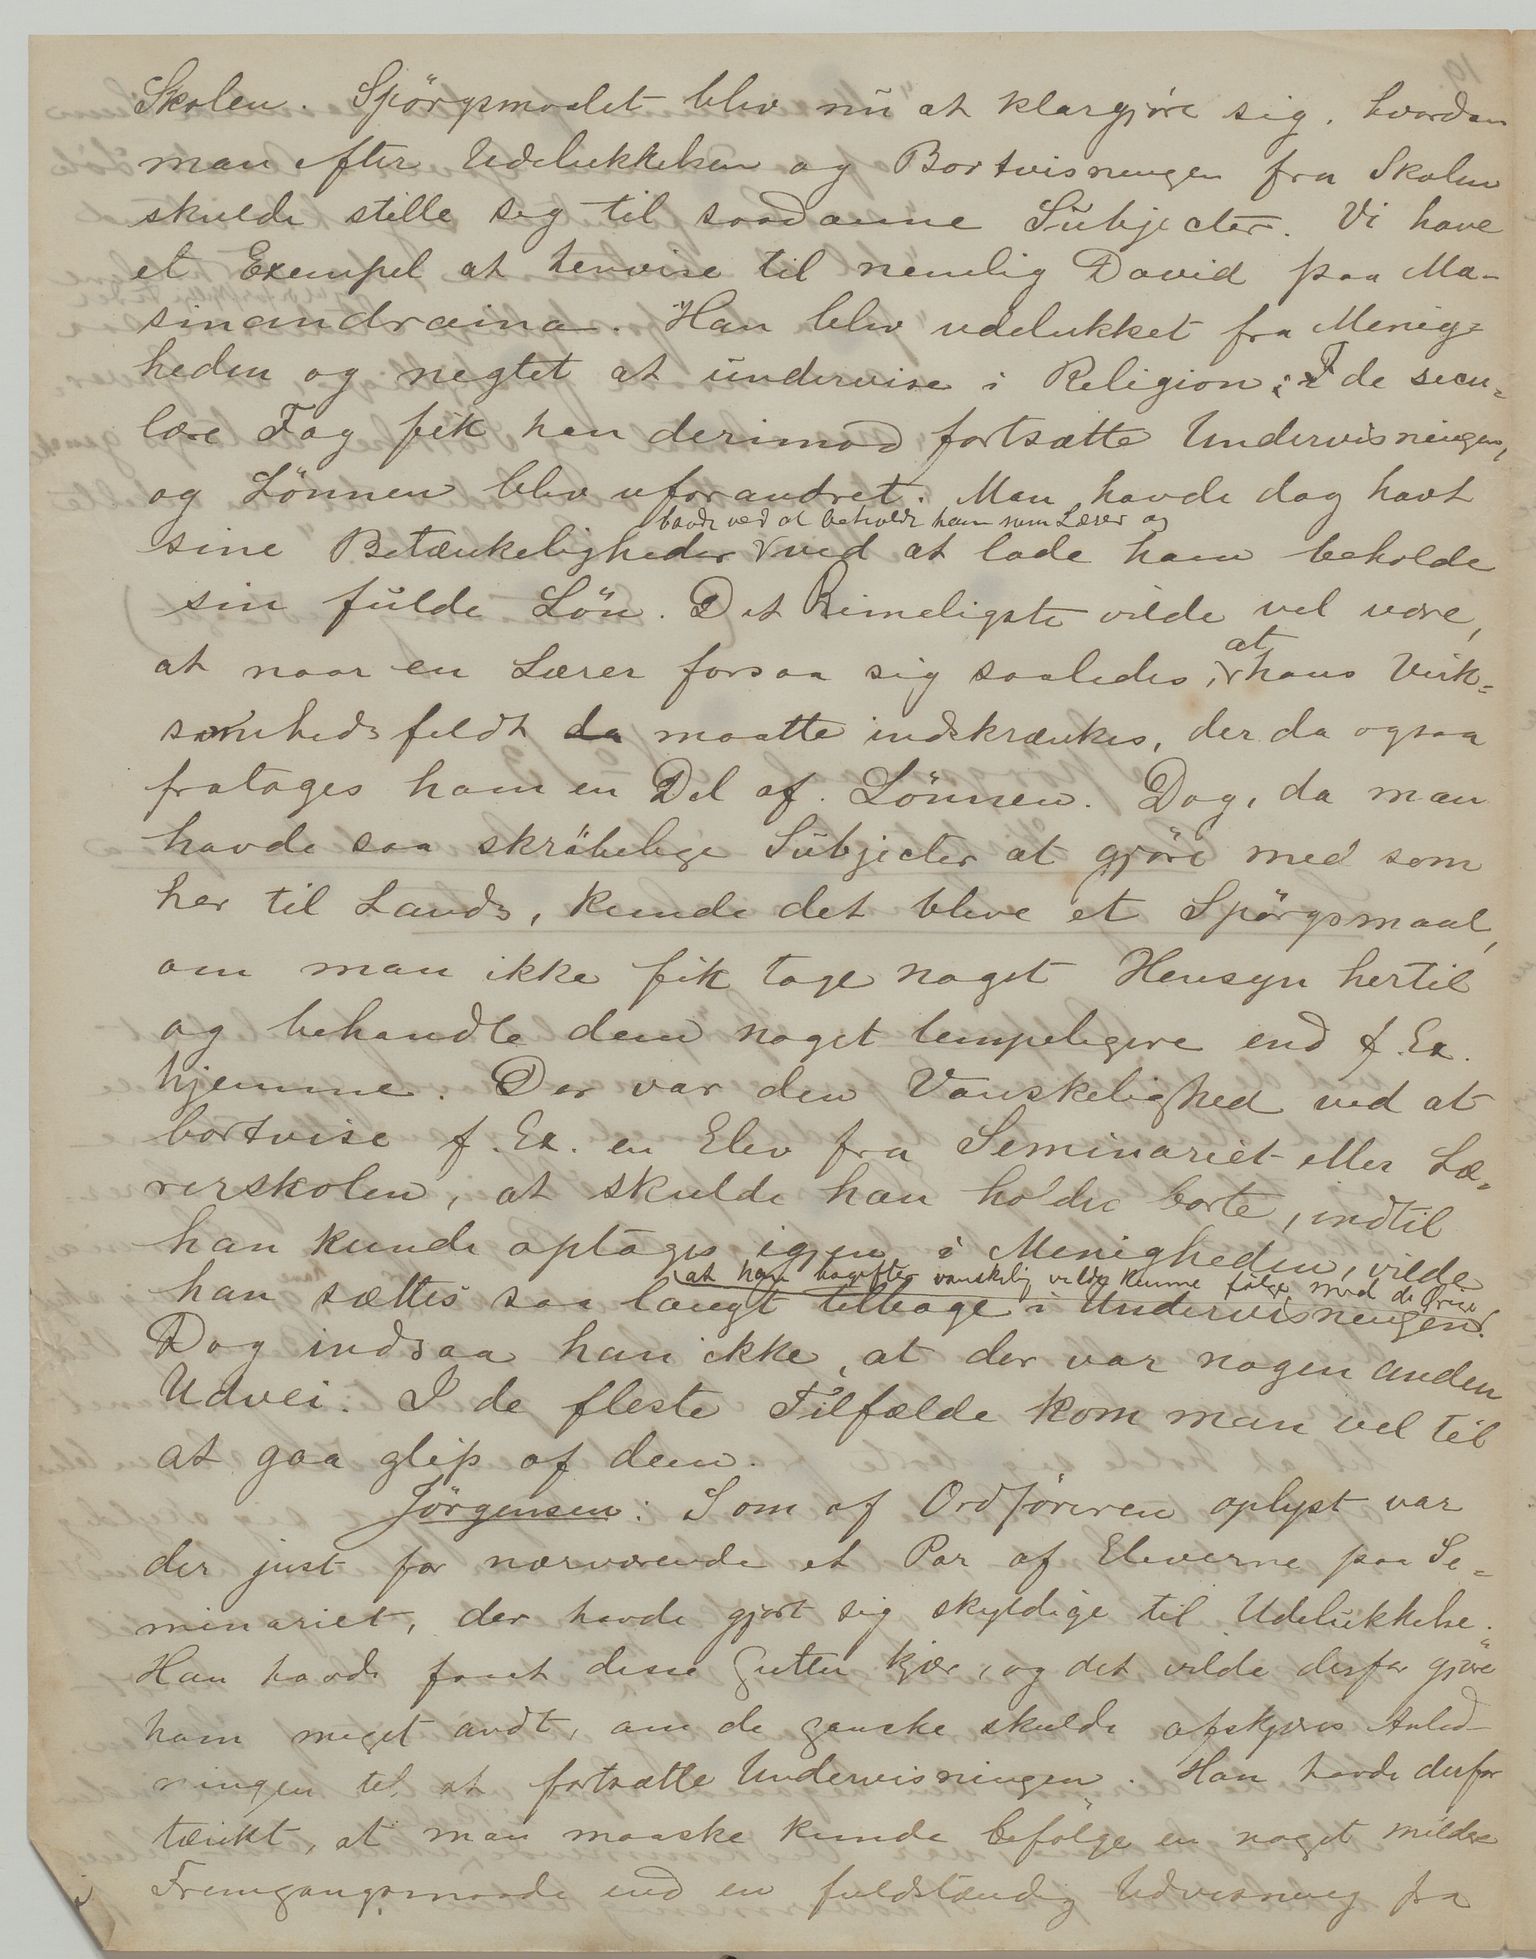 Skolen. Spörgsmaalet blev nu at klargjøre sig, hvordan
man efter Udelukkelsen og Bortvisningen fra Skolen
skulde stille sig til saadanne Subjecter. Vi have
et Exempel at henvise til nemlig David paa Ma-
sinandraina. Han blev udelukket fra Menig=
heden og negtet at undervise i Religion; I de secu=
lære Fag fik han derimod fortsætte Undervisningen,
og Lönnen blev uforandret. Man havde dog havt
baade ved at beholde ham som Lærer og
sine Betænkeligheder ved at lade ham beholde
sin fulde Lön. Det Rimeligste vilde vel være,
at naar en Lærer forsaa sig saaledes, at hans Virk=
somhedsfeldt da maatte indskrænkes, der da ogsaa
fratages ham en Del af Lönnen. Dog, da man
havde saa skröbelige Subjecter at gjøre med som
her til Lands, kunde det blive et Spörgsmaal,
om man ikke fik tage noget Hensyn hertil
og behandle dem noget lempeligere end f. Ex.
hjemme. Der var den Vanskelighed ved at
bortvise f. Ex. en Elev fra Seminariet eller Læ=
rerskolen, at skulde han holdes borte, indtil
han kunde optages igjen i Menigheden, vilde
at han bagefter vanskelig vilde kunne følge med de övrige
han sættes saa langt tilbage i Undervisningen.
Dog indsaa han ikke, at der var nogen anden
Udvei. I de fleste Tilfælde kom man vel til
at gaa glip af dem.
Jörgensen: Som af Ordføreren oplyst var
der just for nærværende et Par af Eleverne paa Se=
minariet, der havde gjort sig skyldige til Udelukkelse.
Han havde faaet disse Gutter kjær, og det vilde derfor gjøre
ham meget ondt, om de ganske skulde afskjæres Anled-
ningen til at fortsætte Undervisningen. Han havde derfor
tænkt, at man maaske kunde befölge en noget mildere
Fremgangsmaade end en fuldstændig Udvisning fra